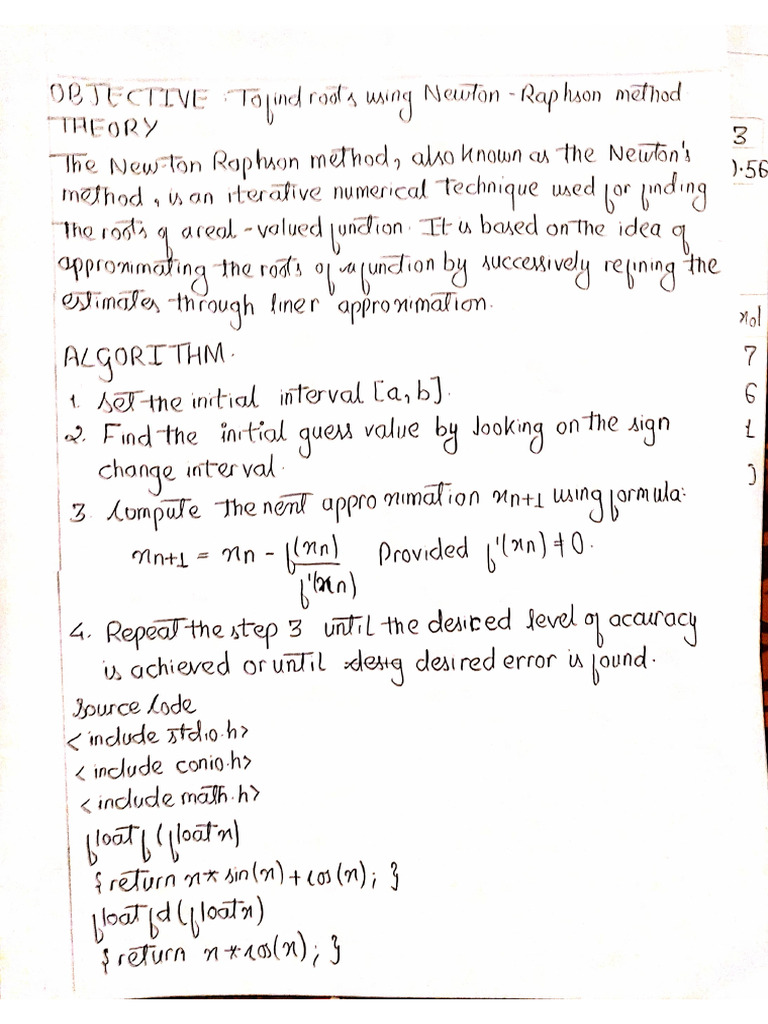 OBJECTIVE : To find roots using Newton-Raphson method
THEORY
The Newton Raphson method, also known as the Newton's
method, is an iterative numerical technique used for finding
the roots of a real-valued function. It is based on the idea of
approximating the roots of a function by successively refining the
estimates through liner approximation.
ALGORITHM.
1. Set the initial interval [a, b].
2. Find the initial guess value by looking on the sign
change interval.
3. Compute the next approximation xn+1 using formula:
xn+1 = xn - f(xn)/f'(xn) Provided f'(xn) ≠ 0.
4. Repeat the step 3 until the desired level of accuracy
is achieved or until desired error is found.
Source Code
<include stdio.h>
<include conio.h>
<include math.h>
float f(float x)
{ return x* sin(x) + cos(x); }
float fd(float x)
{ return x*cos(x); }
3
7
6
1